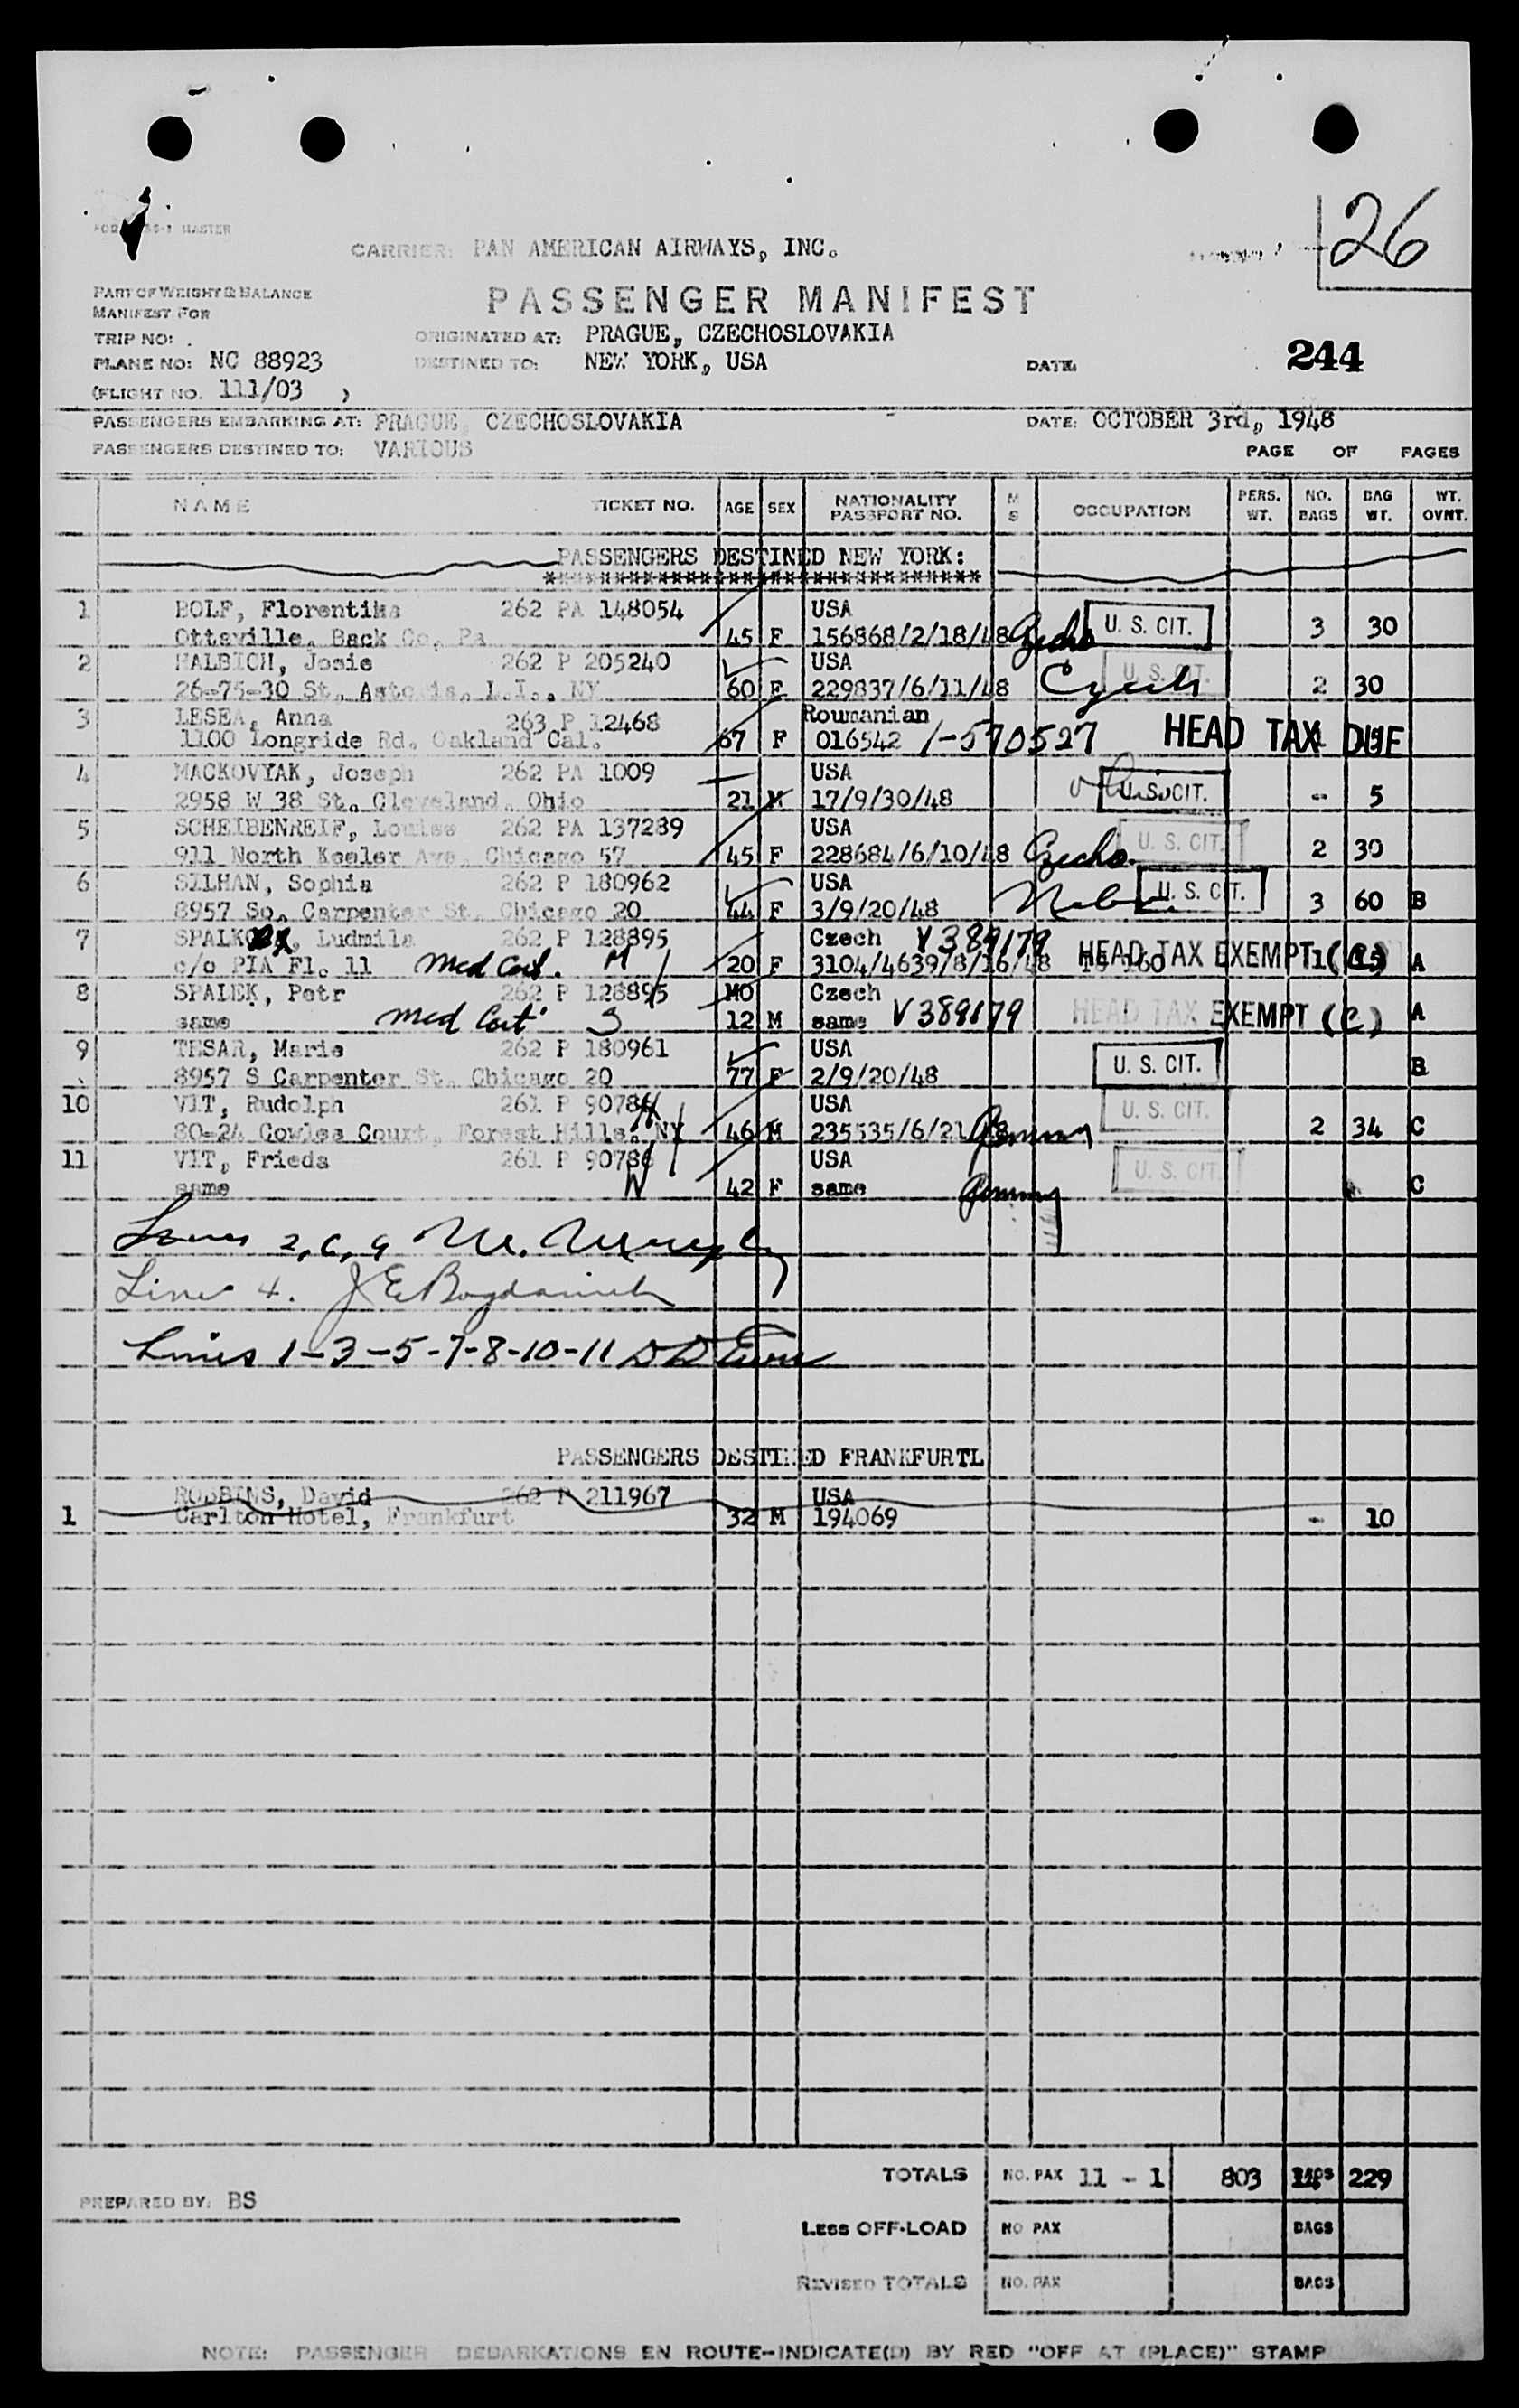 26
CARRIER: PAN AMERICAN AIRWAYS, INC.
PART OF WEIGHT & BALANCE
MANIFEST FOR
PASSENGER MANIFEST
TRIP NO:
ORIGINATED AT: PRAGUE, CZECHOSLOVAKIA
PLANE NO: NC 88923
DESTINED TO: NEW YORK, USA
DATE:
244
(FLIGHT NO. 111/03 )
PASSENGERS EMBARKING AT: PRAGUE, CZECHOSLOVAKIA DATE: OCTOBER 3rd, 1948
PASSENGERS DESTINED TO: VARIOUS PAGE OF PAGES
NAME TICKET NO. AGE SEX NATIONALITY PASSPORT NO. M S OCCUPATION PERS. WT. NO. BAGS BAG WT. WT. OVNT.
PASSENGERS DESTINED NEW YORK:
1 BOLF, Florentina 262 PA 148054 USA
Ottsville, Back Co, Pa 45 F 156868/2/18/48 Czecho U. S. CIT. 3 30
2 HALBICH, Josie 262 P 205240 USA
26-75-30 St, Astoria, L.I., NY 60 F 229837/6/11/48 Czech U. S. CIT. 2 30
3 LESEA, Anna 263 P 12468 Roumanian
1100 Longride Rd. Oakland Cal. 67 F 016542 1-570527 HEAD TAX DUE
4 MACKOVYAK, Joseph 262 PA 1009 USA
2958 W 38 St. Cleveland, Ohio 21 M 17/9/30/48 U. S. CIT. - 5
5 SCHEIBENREIF, Louise 262 PA 137289 USA
911 North Keeler Ave. Chicago 57 45 F 228684/6/10/48 Czecho. U. S. CIT. 2 30
6 SILHAN, Sophia 262 P 180962 USA
8957 So. Carpenter St. Chicago 20 44 F 3/9/20/48 U. S. CIT. 3 60 B
7 Ludmila 262 P 128895 Czech V389179
c/o PIA Fl. 11 Med Cert. M 20 F 3104/4639/8/16/48 HEAD TAX EXEMPT (C) A
8 SPALEK, Petr 262 P 128895 MO Czech
same Med Cert. S 12 M same V389179 HEAD TAX EXEMPT (C) A
9 TESAR, Marie 262 P 180961 USA
8957 S Carpenter St. Chicago 20 77 F 2/9/20/48 U. S. CIT. B
10 VIT, Rudolph 261 P 90786 USA
80-24 Cowles Court, Forest Hills, NY 46 M 235535/6/21/48 Germany U. S. CIT. 2 34 C
11 VIT, Frieda 261 P 90786 USA
same 42 F same Germany U. S. CIT. C
Lines 2, 6, 9 M. Murphy
Line 4.
Lines 1-3-5-7-8-10-11
PASSENGERS DESTINED FRANKFURTL
ROBBINS, David 262 P 211967 USA
1 Carlton Hotel, Frankfurt 32 M 194069 - 10
TOTALS NO. PAX 11 - 1 803 BAGS 229
PREPARED BY: BS
LESS OFF-LOAD NO PAX BAGS
REVISED TOTALS NO. PAX BAGS
NOTE: PASSENGER DEBARKATIONS EN ROUTE-INDICATE(D) BY RED "OFF AT (PLACE)" STAMP